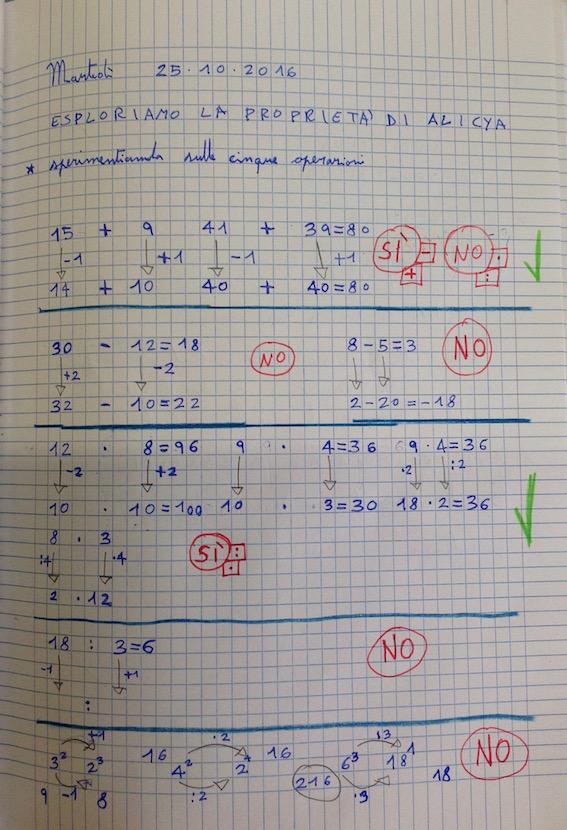 Martedì 25.10.2016
ESPLORIAMO LA PROPRIETÀ DI ALICYA
* sperimentiamola sulle cinque operazioni
15 + 9 41 + 39=80
-1 +1 -1 +1 SÌ - + NO . :
14 + 10 40 + 40=80
30 - 12=18 8-5=3
+2 -2 NO NO
32 - 10=22 2-20=-18
12 . 8=96 9 . 4=36 9.4=36
-2 +2 .2 :2
10 . 10=100 10 . 3=30 18.2=36
8 . 3
:4 .4 SÌ : .
2 .12
18 : 3=6
-1 +1 NO
:
+1 .2 .3
3² 2³ 16 4² 2⁴ 16 6³ 18¹ NO
9 -1 8 :2 216 :3 18